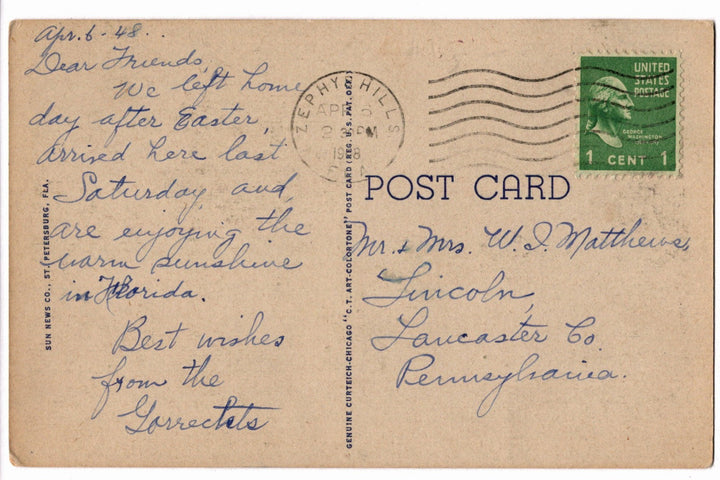 Apr. 6 - 48...
Dear Friends,
We left home
day after Easter,
arrived here last
Saturday and
are enjoying the
warm sunshine
in Florida.
Best wishes
from the
Gorrechts
SUN NEWS CO., ST. PETERSBURG, FLA.
GENUINE CURTEICH-CHICAGO "C.T. ART-COLORTONE" POST CARD (REG. U.S. PAT. OFF.)
ZEPHYRHILLS
APR 6
PM
1948
UNITED
STATES
POSTAGE
GEORGE
WASHINGTON
1 CENT 1
POST CARD
Mr. & Mrs. W. I. Matthews,
Lincoln,
Lancaster Co.
Pennsylvania.